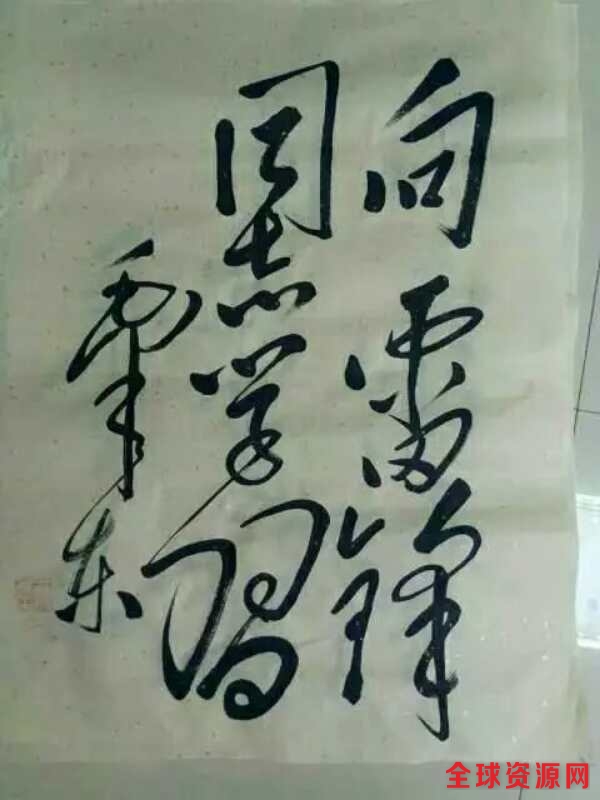 向雷锋
同志学习
毛泽东
全球资源网